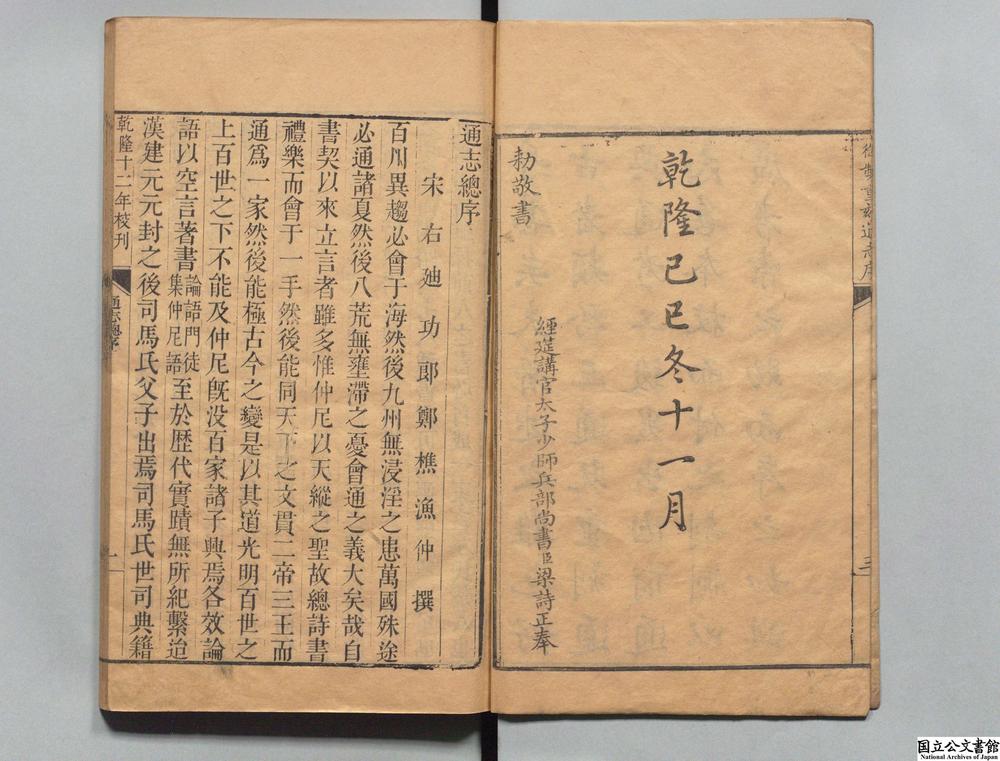 御製重刻通志序
三
乾隆己巳冬十一月
經筵講官太子少師兵部尚書臣梁詩正奉
勅敬書
通志總序
宋右廸功郎鄭樵漁仲撰
百川異趨必會于海然後九州無浸淫之患萬國殊途
必通諸夏然後八荒無壅滯之憂會通之義大矣哉自
書契以來立言者雖多惟仲尼以天縱之聖故總詩書
禮樂而會于一手然後能同天下之文貫二帝三王而
通爲一家然後能極古今之變是以其道光明百世之
上百世之下不能及仲尼旣没百家諸子興焉各效論
語以空言著書論語門徒集仲尼語至於歷代實蹟無所紀繫迨
漢建元元封之後司馬氏父子出焉司馬氏世司典籍
乾隆十二年校刊
通志總序
一
国立公文書館
National Archives of Japan